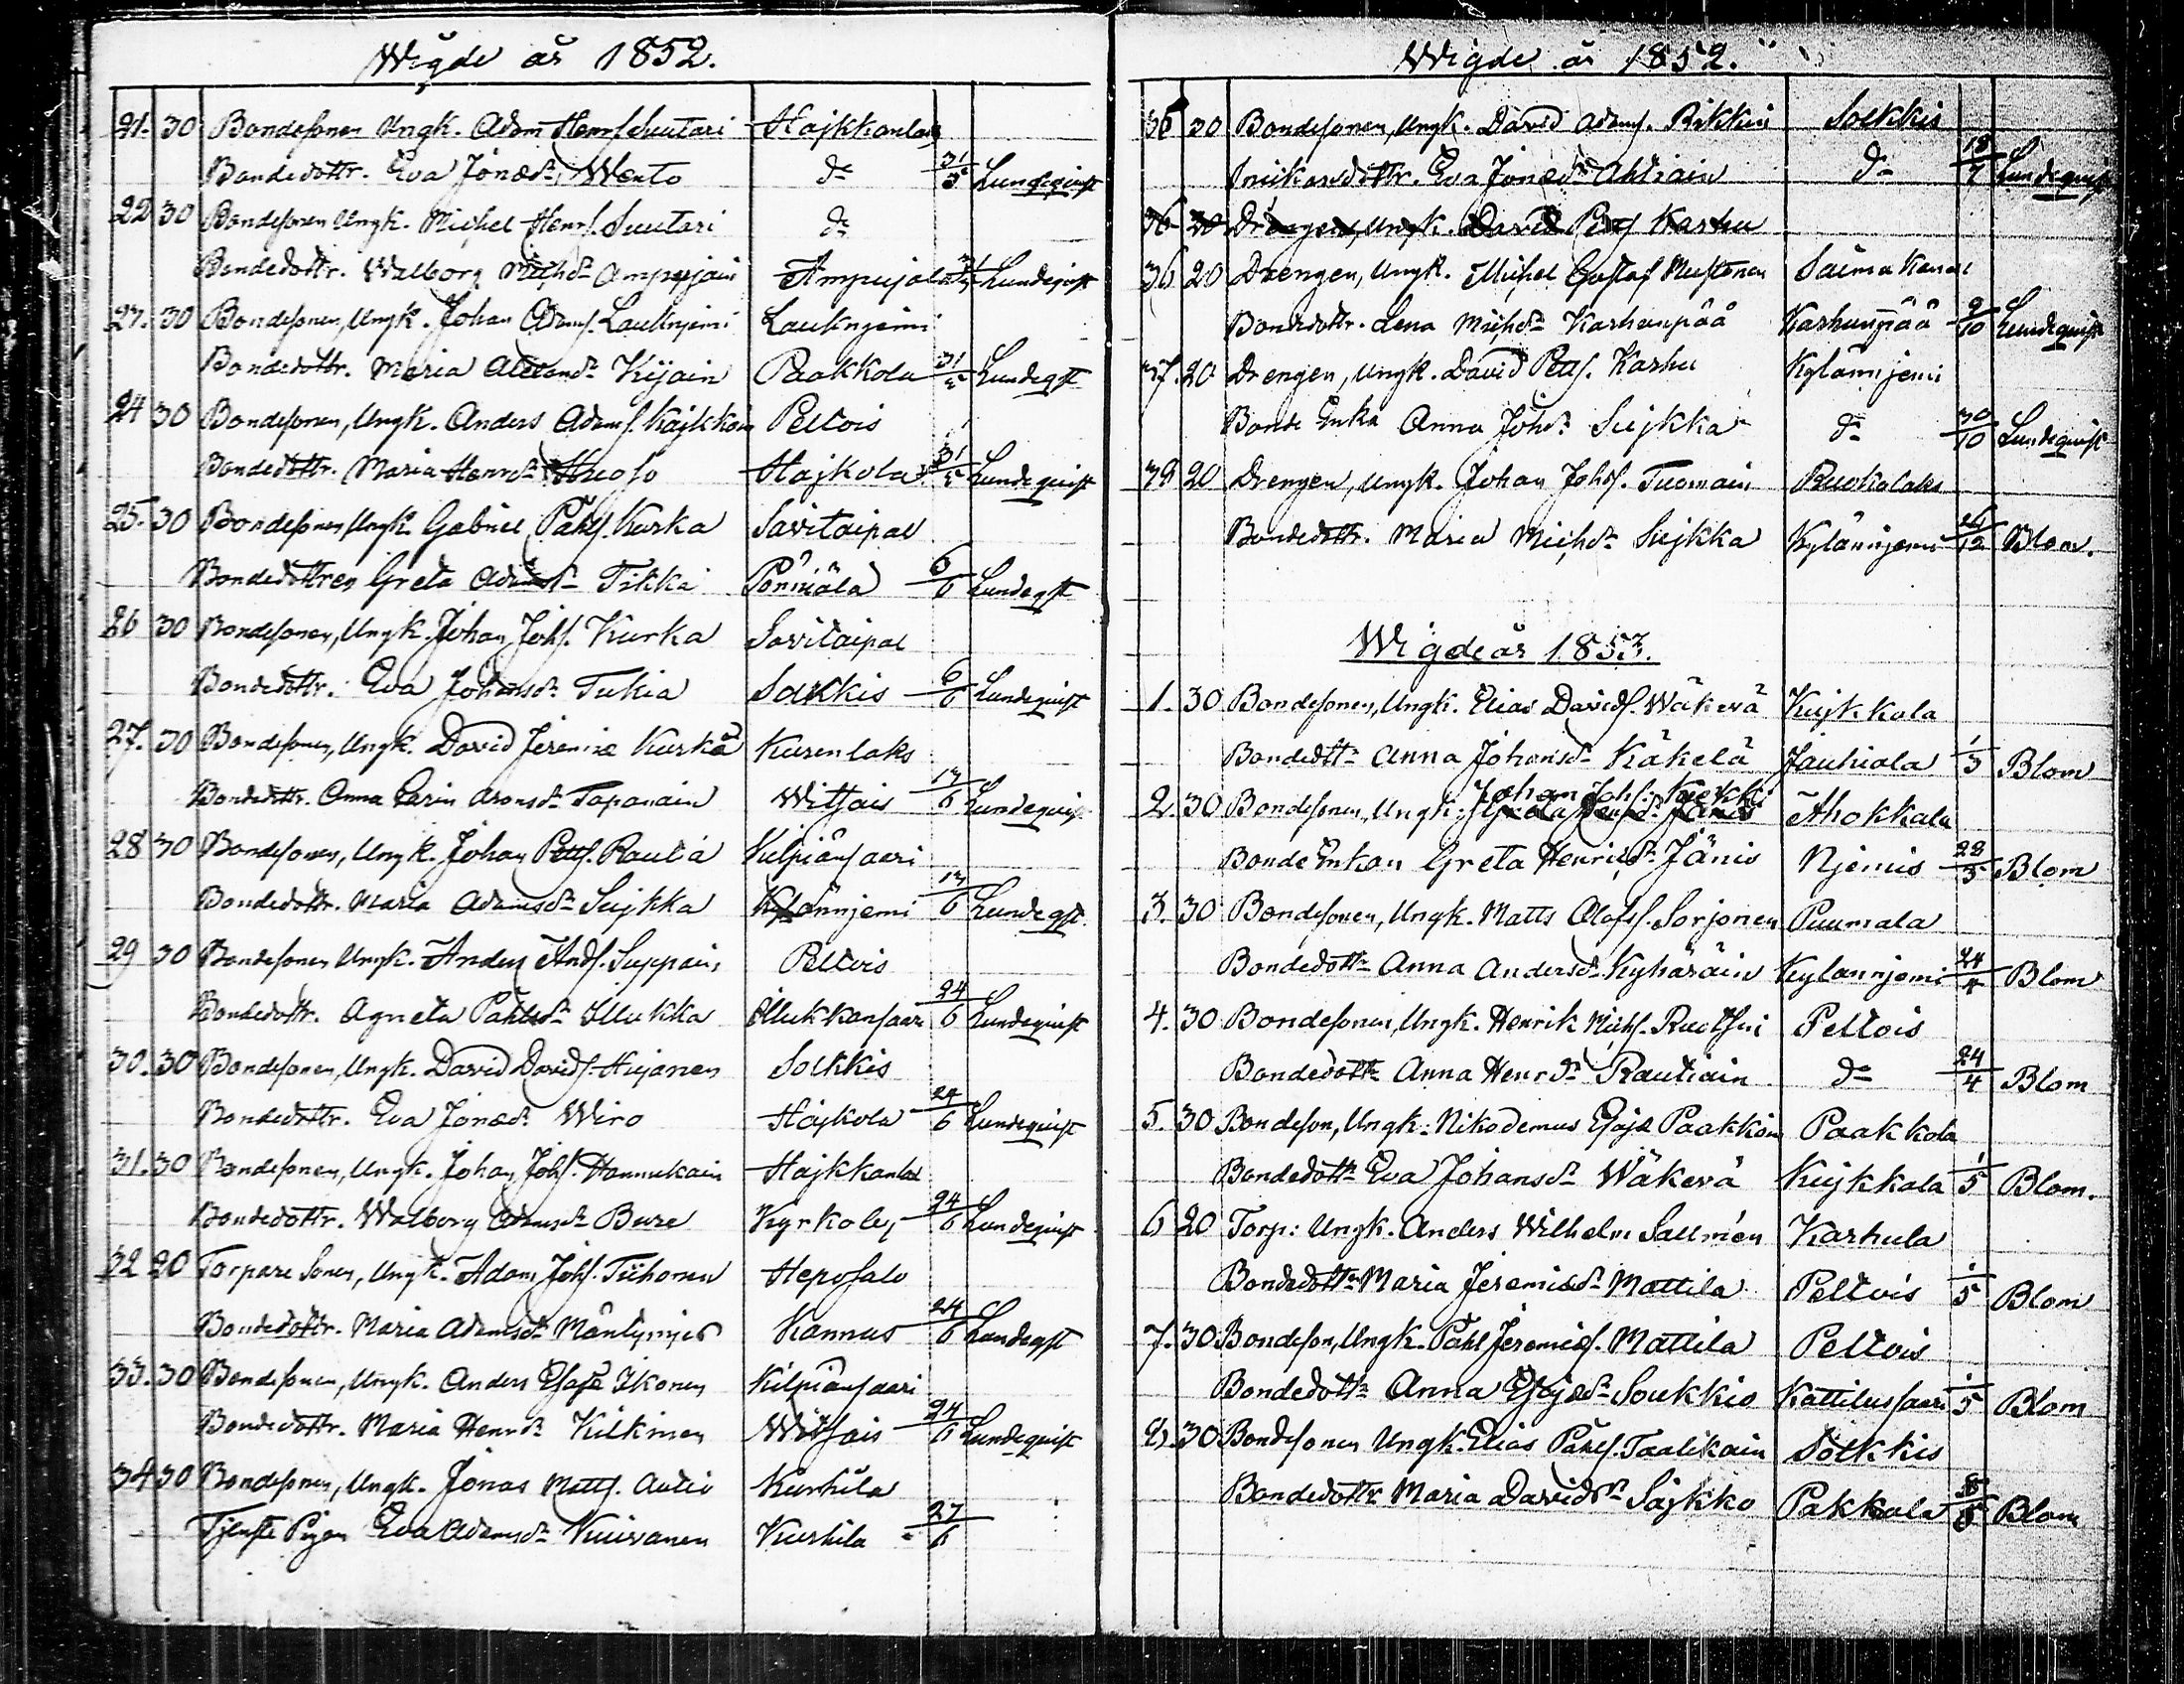 Wigde år 1852.
21. 30 Bondesonen Ungk. Adam Henrs. Suutari Hajkkanlax
Bondedottr. Eva Jonæd:r Wento d:o 31/5 Lundequist
22 30 Bondesonen Ungk. Michel Henrs. Suutari d:o
Bondedottr. Walborg Michd:r Ampujain Ampujala 31/5 Lundequist
23. 30 Bondesonen, Ungk. Johan Adams. Lauknjemi Lauknjemi
Bondedottr. Maria Alexandd:r Kijain Paakkola 31/5 Lundeqst
24 30 Bondesonen, Ungk. Anders Adams. Kajkkoin Peltois
Bondedottr. Maria Henrd:r Huoso Hajkola 31/5 Lundequist
25. 30 Bondesonen Ungk. Gabriel Påhls. Kurka Savitaipal
Bondedottren Greta Adamsd:r Tikka Pönniälä 6/6 Lundeqst
26 30 Bondesonen, Ungk. Johan Johs. Kurka Savitaipal
Bondedottr. Eva Johansd:r Tukia Solkkis 6/6 Lundequist
27. 30 Bondesonen, Ungk. David Jeremiæ Kurka Kurenlaks
Bondedottr. Anna Carin Aronsd:r Tapanain Witsais 13/6 Lundequist
28 30 Bondesonen, Ungk. Johan Petts. Rautia Kilpiänsaari
Bondedottr. Maria Adamsd:r Sujkka Kylännjemi 13/6 Lundeqst
29 30 Bondesonen Ungk. Anders Ands. Suppain Peltois
Bondedottr. Agneta Påhlsd:r Illukka Illukkansaari 24/6 Lundequist
30. 30 Bondesonen, Ungk. David Davids. Hujanen Solkkis
Bondedottr. Eva Jonæd:r Wiro Hajkola 24/6 Lundequist
31. 30 Bondesonen, Ungk. Johan Johs. Hannukain Hajkkanlax
Bondedottr. Walborg Adamsd:r Bure Kyrkoby 24/6 Lundequist
32 20 Torpare Sonen, Ungk. Adam Johs. Tiihonen Heposalo
Bondedottr. Maria Adamsd:r Mäntynjes Kannus 24/6 Lundeqst
33. 30 Bondesonen, Ungk. Anders Esajæ Ikonen Kilpiänsaari
Bondedottr. Maria Henrd:r Kilkinen Witsais 24/6 Lundequist
34 30 Bondesonen, Ungk. Jonas Matts. Autio Kurhila
Tjenste Pigan Eva Adamsd:r Kuivanen Kurhila 27/6
Wigde år 1852.
35 20 Bondesonen, Ungk. David Adams. Rikkin Solkkis
dottr. Eva Jonæd:r Ahtiain d:o 18/7 Lundequist
36 20 Drengen, Ungk. David Petts Karhu
36 20 Drengen, Ungk. Michel Gustafs Mustonen Saima Kanal
Bondedottr. Lena Michd:r Karhunpää Karhunpää 9/10 Lundequist
37. 20 Drengen, Ungk. David Petts. Karhu Kylännjemi
Bonde Enka Anna Johd:r Sujkka d:o 30/10 Lundequist
38 20 Drengen, Ungk. Johan Johs. Tuomain Ruokolaks
Bondedottr. Maria Michd:r Sujkka Kylännjemi 26/12 Blom.
Wigde år 1853.
1. 30 Bondesonen, Ungk. Elias Davids. Wäkevä Kujkkala
Bondedott:r Anna Johansd:r Käkelä Jauhiala 1/3 Blom
Johan Johs. Kierkki
2. 30 Bondesonen, Ungk. Ahokkala
Bonde Enkan Greta Henricsd:r Jänis Njemis 28/3 Blom
3. 30 Bondesonen, Ungk. Matts Olofs. Sorjonen Puumala
Bondedott:r Anna Andersd:r Kyhäräin Kylannjemi 24/4 Blom
4. 30 Bondesonen, Ungk. Henrik Michs. Ruotsui Peltois
Bondedott:r Anna Henrd:r Rautiain d:o 24/4 Blom
5. 30 Bondeson, Ungk. Nikodemus Esajæ Paakkoin Paakkola
Bondedott:r Eva Johansd:r Wäkevä Kujkkala 1/5 Blom.
6 20 Torp: Ungk. Anders Wilhelm Sallmén Karhula
Bondedott:r Maria Jeremiæd:r Mattila Peltois 1/5 Blom
7. 30 Bondeson, Ungk. Påhl Jeremiæs. Mattila Peltois
Bondedott:r Anna Esajæd:r Soukkio Kattilussaari 1/5 Blom
8. 30 Bondesonen Ungk. Elias Påhls. Taalikain Solkkis
Bondedottr Maria Davidsd:r Sajkko Pakkala 8/5 Blom